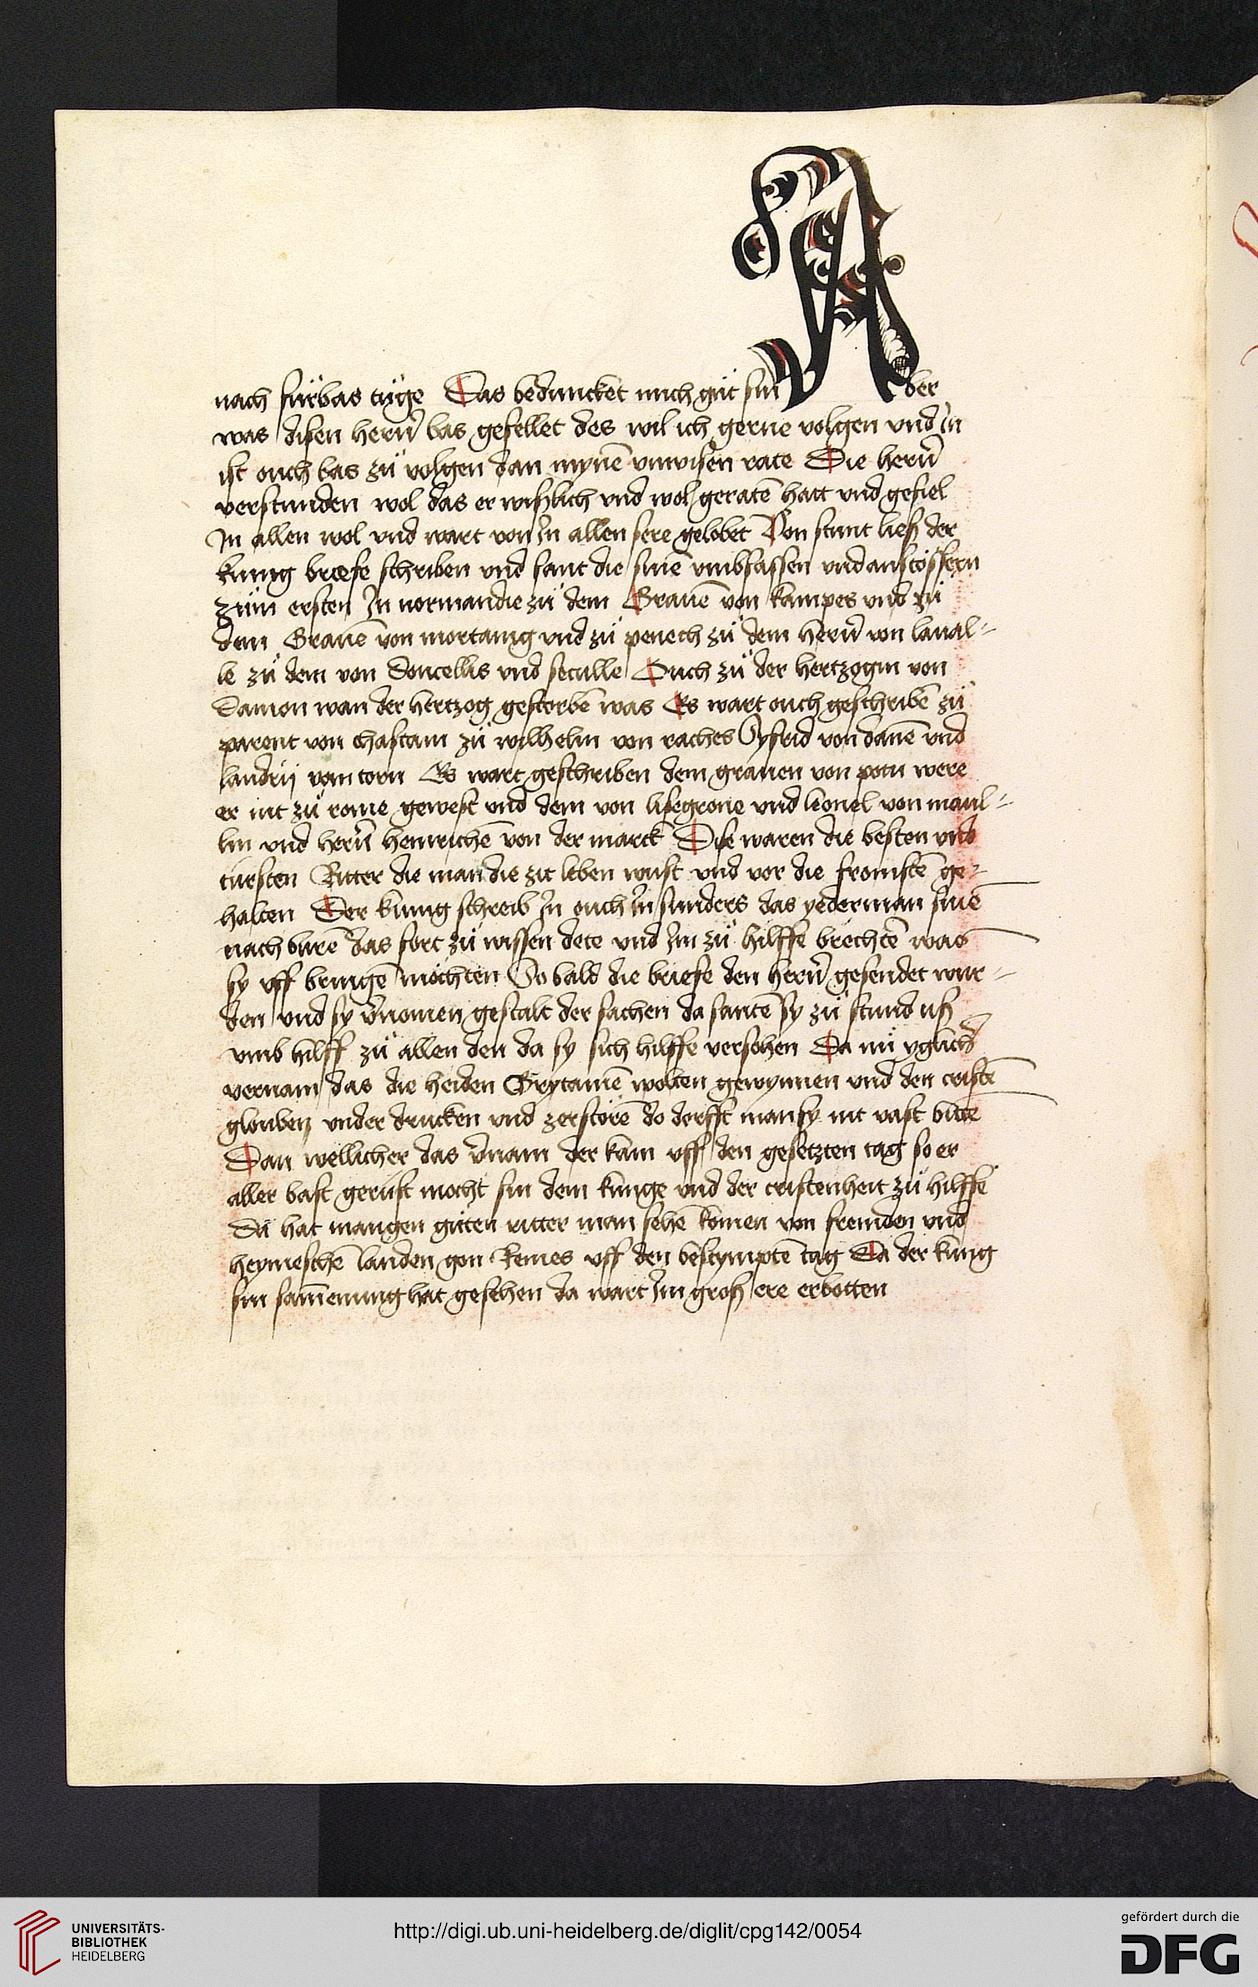 nach fürbas tüge Das beduncket mich güt sin Aber
was disen herñ bas gefellet des wil ich gerne volgen vnd in
ist ouch bas zü volgen dan mynē vnwisen rate Die herñ
verstunden wol das er wißlich vnd wol geratē hatt vnd gefiel
In allen wol vnd wart von In allen sere gelobet Von stunt ließ der
kunig brieffe schriben vnd sant die sinē vmbsassen vnd anstössern
züm ersten In normandie zü dem Grauē von kampes vnd zü
dem Grauē von mortanig vnd zü penech zü dem herñ von laual-
le zü dem von doncellis vnd seculle Ouch zü der hertzogin von
Damon wan der hertzog gestorbē was Es wart ouch geschribē zü
parent von chastain zü wilhelm von raches Syfrid von danē vnd
landrij vom torn Es wart geschriben dem grauen von potu were
er nit zü rome gewest vnd dem von lisegrone vnd leonel von maul-
lin vnd herñ heinrichē von der marck Dise waren die besten vnd
türsten Ritter die man die zit leben wust vnd vor die fromstē ge-
halten Der kunig schreib In ouch In sunders das yederman sinē
nachburē das fort zü wissen dete vnd Im zü hilffe brechtē was
sy vff bringē möchten So bald die brieffe den herñ gesendet wur-
den vnd sy v̄nomen gestalt der sachen da santē sy zü stund uß
vmb hilff zü allen den da sy sich hilffe versohen Da nü yglich
vernam das die heiden Brytaniē wolten gewynnen vnd den cristē
glouben vnder drucken vnd zerstörē do dorfft man sy nit vast bittē
Dan wellicher das v̄nam der kam vff den gesetzten tag so er
aller bast gerüst mocht sin dem kunge vnd der cristenheit zü hilffe
Da hat mangen güten ritter man sehē komen von fremden vnd
heymeschē landen gon Remes vff den bestymptē tag Da der king
sin sam̄enung hat gesehen da wart Im groß ere erbotten
UNIVERSITÄTS-
BIBLIOTHEK
HEIDELBERG
http://digi.ub.uni-heidelberg.de/diglit/cpg142/0054
gefördert durch die
DFG